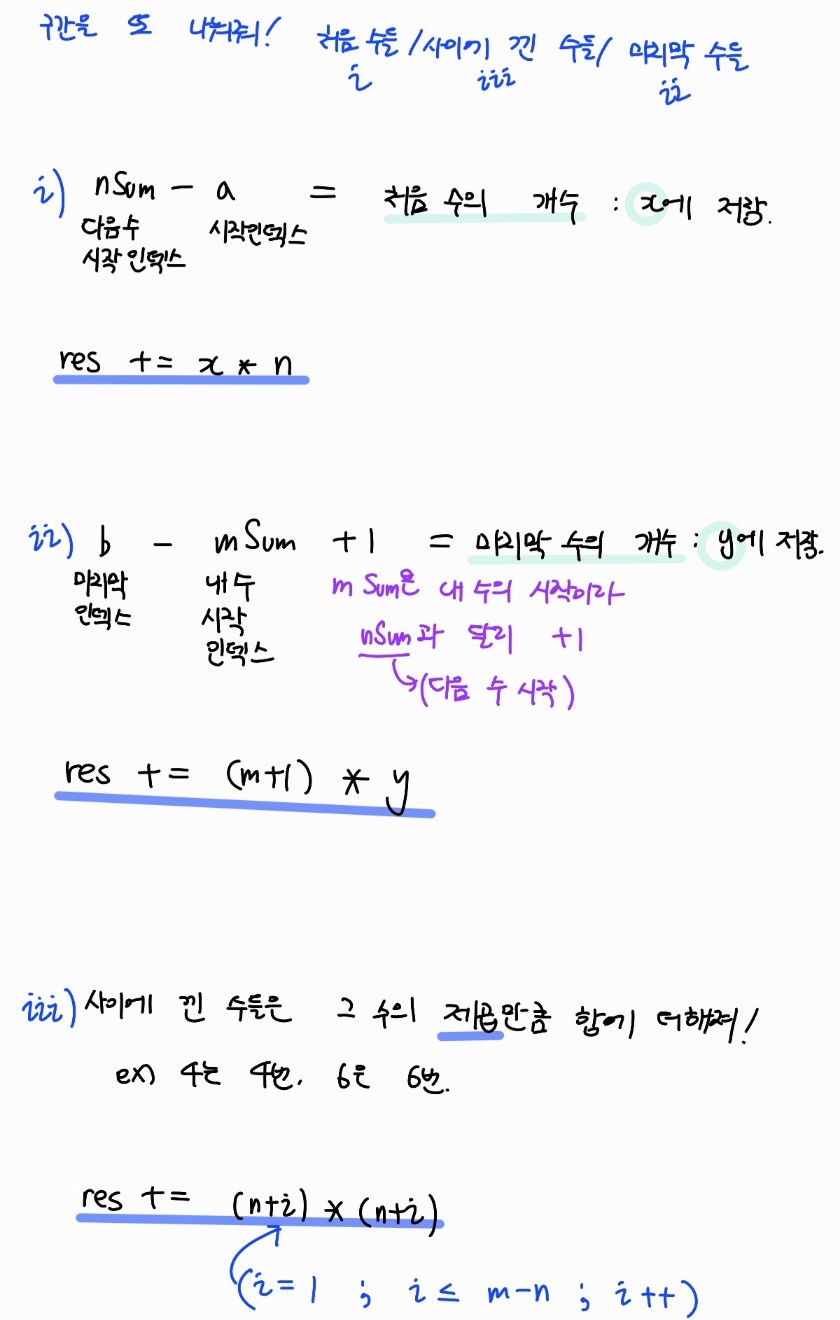 구간을 또 나눠줘! 처음 수들 / 사이에 낀 수들 / 마지막 수들
i iii ii
i) nSum - a = 처음 수의 개수 : x에 저장.
다음수 시작인덱스
시작 인덱스
res += x * n
ii) b - mSum +1 = 마지막 수의 개수 : y에 저장.
마지막 내 수 m Sum은 내 수의 시작이라
인덱스 시작 nSum과 달리 +1
인덱스 →(다음 수 시작)
res += (m+1) * y
iii) 사이에 낀 수들은 그 수의 제곱만큼 합에 더해져!
ex) 4는 4번. 6은 6번.
res += (n+i) * (n+i)
(i=1 ; i ≤ m-n ; i++)